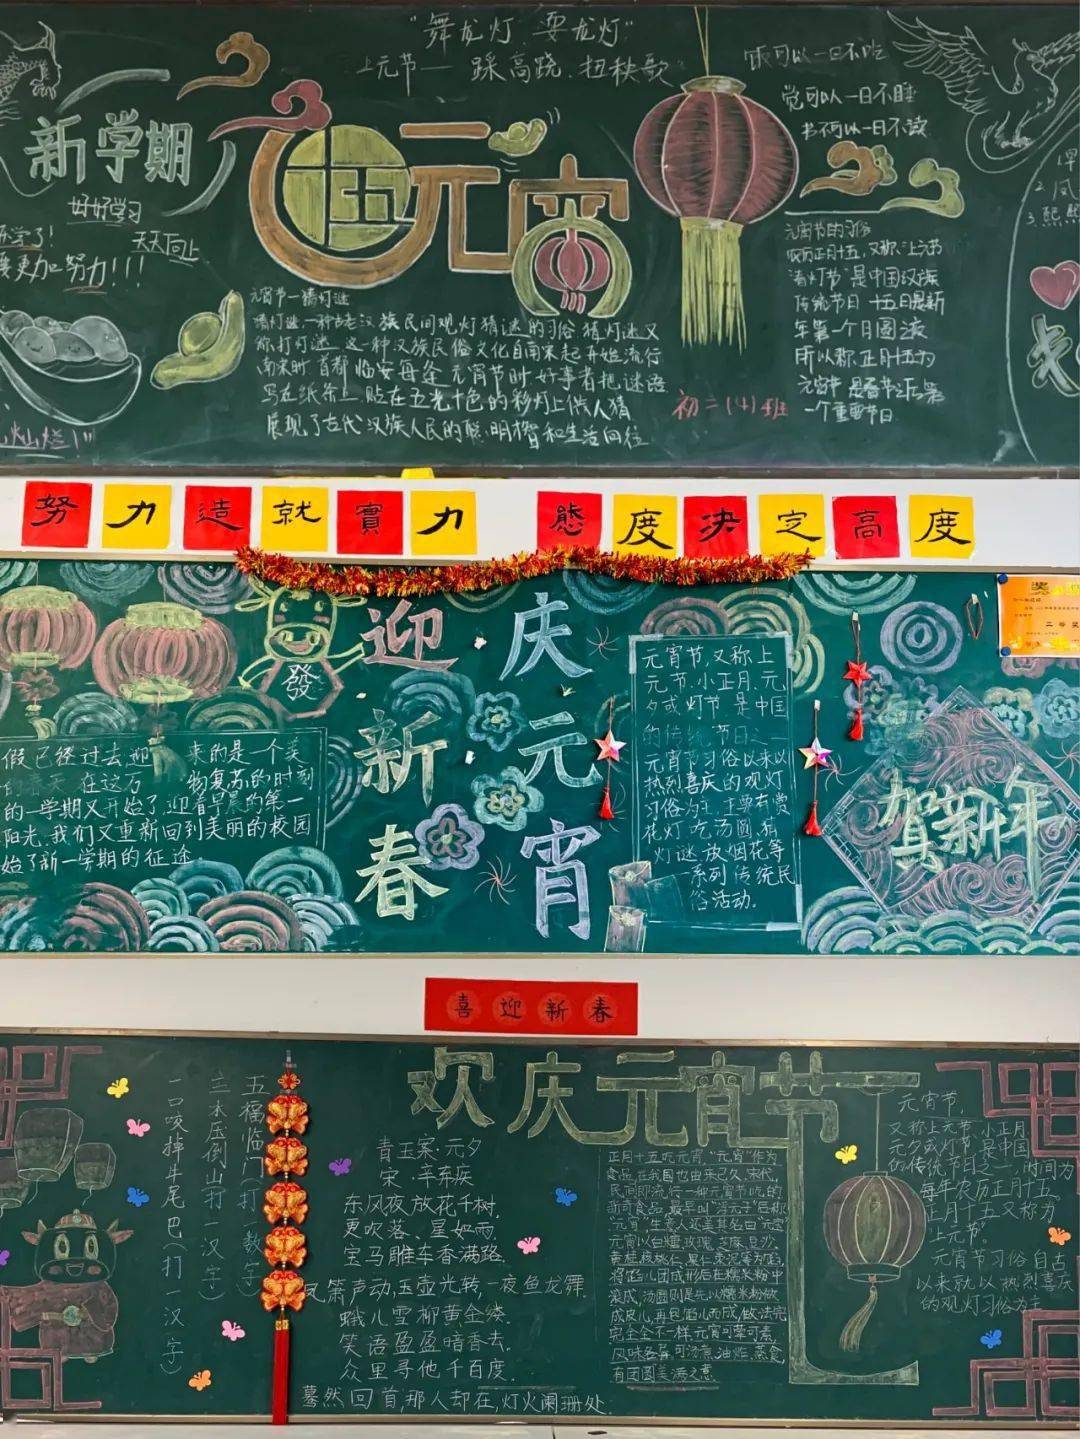 "舞龙灯 耍龙灯"
上元节— 踩高跷、扭秧歌
新学期
好好学习
天天向上
要更加努力!!!
灿烂!"
元宵
饭可以一日不吃
觉可以一日不睡
书不可以一日不读
元宵节—猜灯谜
猜灯谜,一种古老汉族民间观灯猜谜的习俗 猜灯谜又
称打灯谜 这一种汉族民俗文化自南宋起开始流行
南宋时 首都 临安每逢 元宵节时 好事者把谜语
写在纸条上 贴在五光十色的彩灯上供人猜
展现了古代汉族人民的聪明才智和生活向往
初二(4)班
元宵节的习俗
农历正月十五,又称"上元节
传统节日 十五日是新
年第一个月圆夜
所以称正月十五为
一个重要节日
努力造就實力 態度决定高度
迎新春
庆元宵
發
假已经过去,迎 来的是一个美
的春天 在这万 物复苏的时刻
的一学期又开始了,迎着早晨的第一
阳光,我们又重新回到美丽的校园
始了新一学期的征途.
元宵节,又称上
元节、小正月、元
夕或灯节 是中国
的传统节日之一
元宵节习俗以来以
热烈喜庆的观灯
习俗为主 主要有赏
花灯 吃汤圆 猜
灯谜 放烟花等
一系列传统民
俗活动.
贺新年
喜迎新春
欢庆元宵节
五福临门(打一数字)
三本压倒山打一汉字)
一口咬掉牛尾巴(打一汉字)
青玉案·元夕
宋·辛弃疾
东风夜放花千树.
更吹落、星如雨.
宝马雕车香满路.
凤箫声动,玉壶光转,一夜鱼龙舞.
蛾儿雪柳黄金缕.
笑语盈盈暗香去.
众里寻他千百度.
蓦然回首,那人却在,灯火阑珊处.
正月十五吃元宵,"元宵"作为
食品,在我国也由来已久,宋代,
民间即流行一种元宵节吃的
新奇食品,最早叫"浮元子"后称
"元宵"生意人还美其名曰"元宝"
元宵以白糖、玫瑰、芝麻、豆沙、
黄桂、核桃仁、果仁、枣泥等为馅
成皮儿,再包馅儿而成,做法完
完全全不一样 元宵可荤可素,
风味各异,可汤煮、油炸、蒸食,
有团圆美满之意
元宵节,
又称上元节、小正月、
元夕或灯节,是中国
的传统节日之一,时间为
每年农历正月十五,
正月十五又称为
"上元节"
元宵节习俗自古
以来就以热烈喜庆
的观灯习俗为主